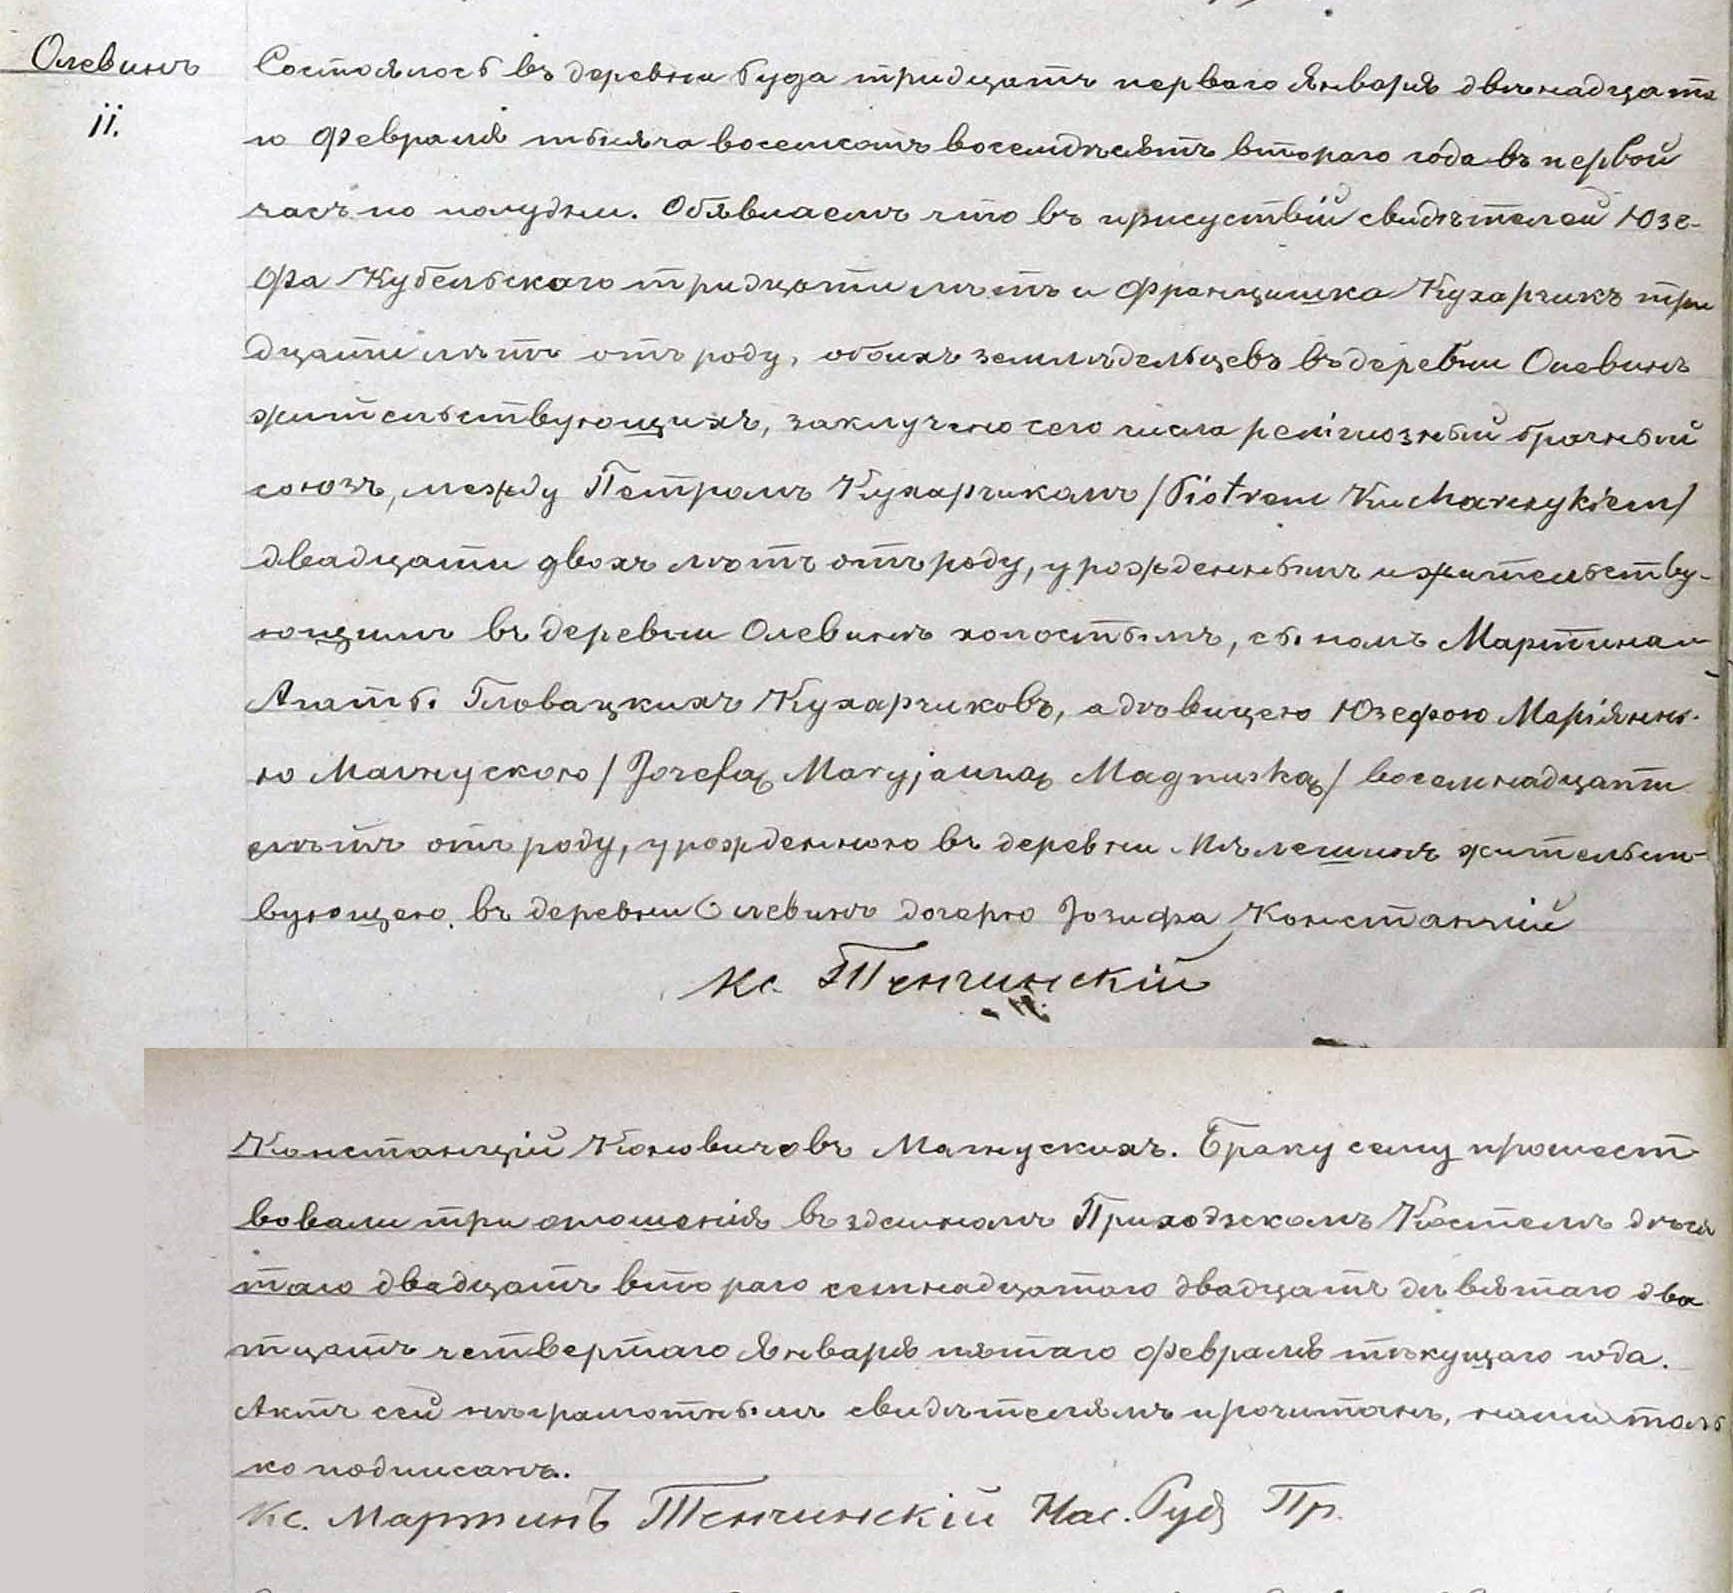 Олевинъ
11.
Состоялось въ деревни Гуда тридцать перваго Января двѣнадцата
го Февраля тысяча восемсотъ восемдѣсятъ втораго года въ первой
часъ по полудни. Обявлаемъ что въ присуствій свидѣтелей Юзе-
фа Кубельскаго тридцати лѣтъ и Францишка Кухарчикъ три
дцати лѣтъ отъ роду, обоихъ землѣдельцевъ въ деревни Олевинъ
жительствующихъ, заключено сего числа религиозный брачный
союзъ, между Петромъ Кухарчикомъ /Piotrem Kucharczykiem/
двадцати двохъ лѣтъ отъ роду, урожденнымъ и жительству-
ющимъ въ деревни Олевинъ холостымъ, сыномъ Мартина и
Агаты Гловацкихъ Кухарчиковъ, а дѣвицею Юзефою Маріянн-
ю Магнускою /Jozefą Maryjanną Magnuską/ восемнадцати
лѣтъ отъ роду, урожденною въ деревни жительст-
вующею въ деревни Олевинъ дочерю Іозифа Констанчій
Кс. Тенчинскій
Констанцій Коновичовъ Магнускихъ. Браку сему прошест
вовали три оглошенія въ здешномъ Приходзскомъ Костелѣ дѣся
таго двадцать втораго семнадцатого двадцать дѣвятаго два
тцать четвертаго Января пятаго февраля тѣкущаго года.
Актъ сей нѣграмотнымъ свидѣтелямъ прочитанъ, нами толь
ко подписанъ.
Кс. Мартинъ Тенчинскій Нас. Гуд Пр.